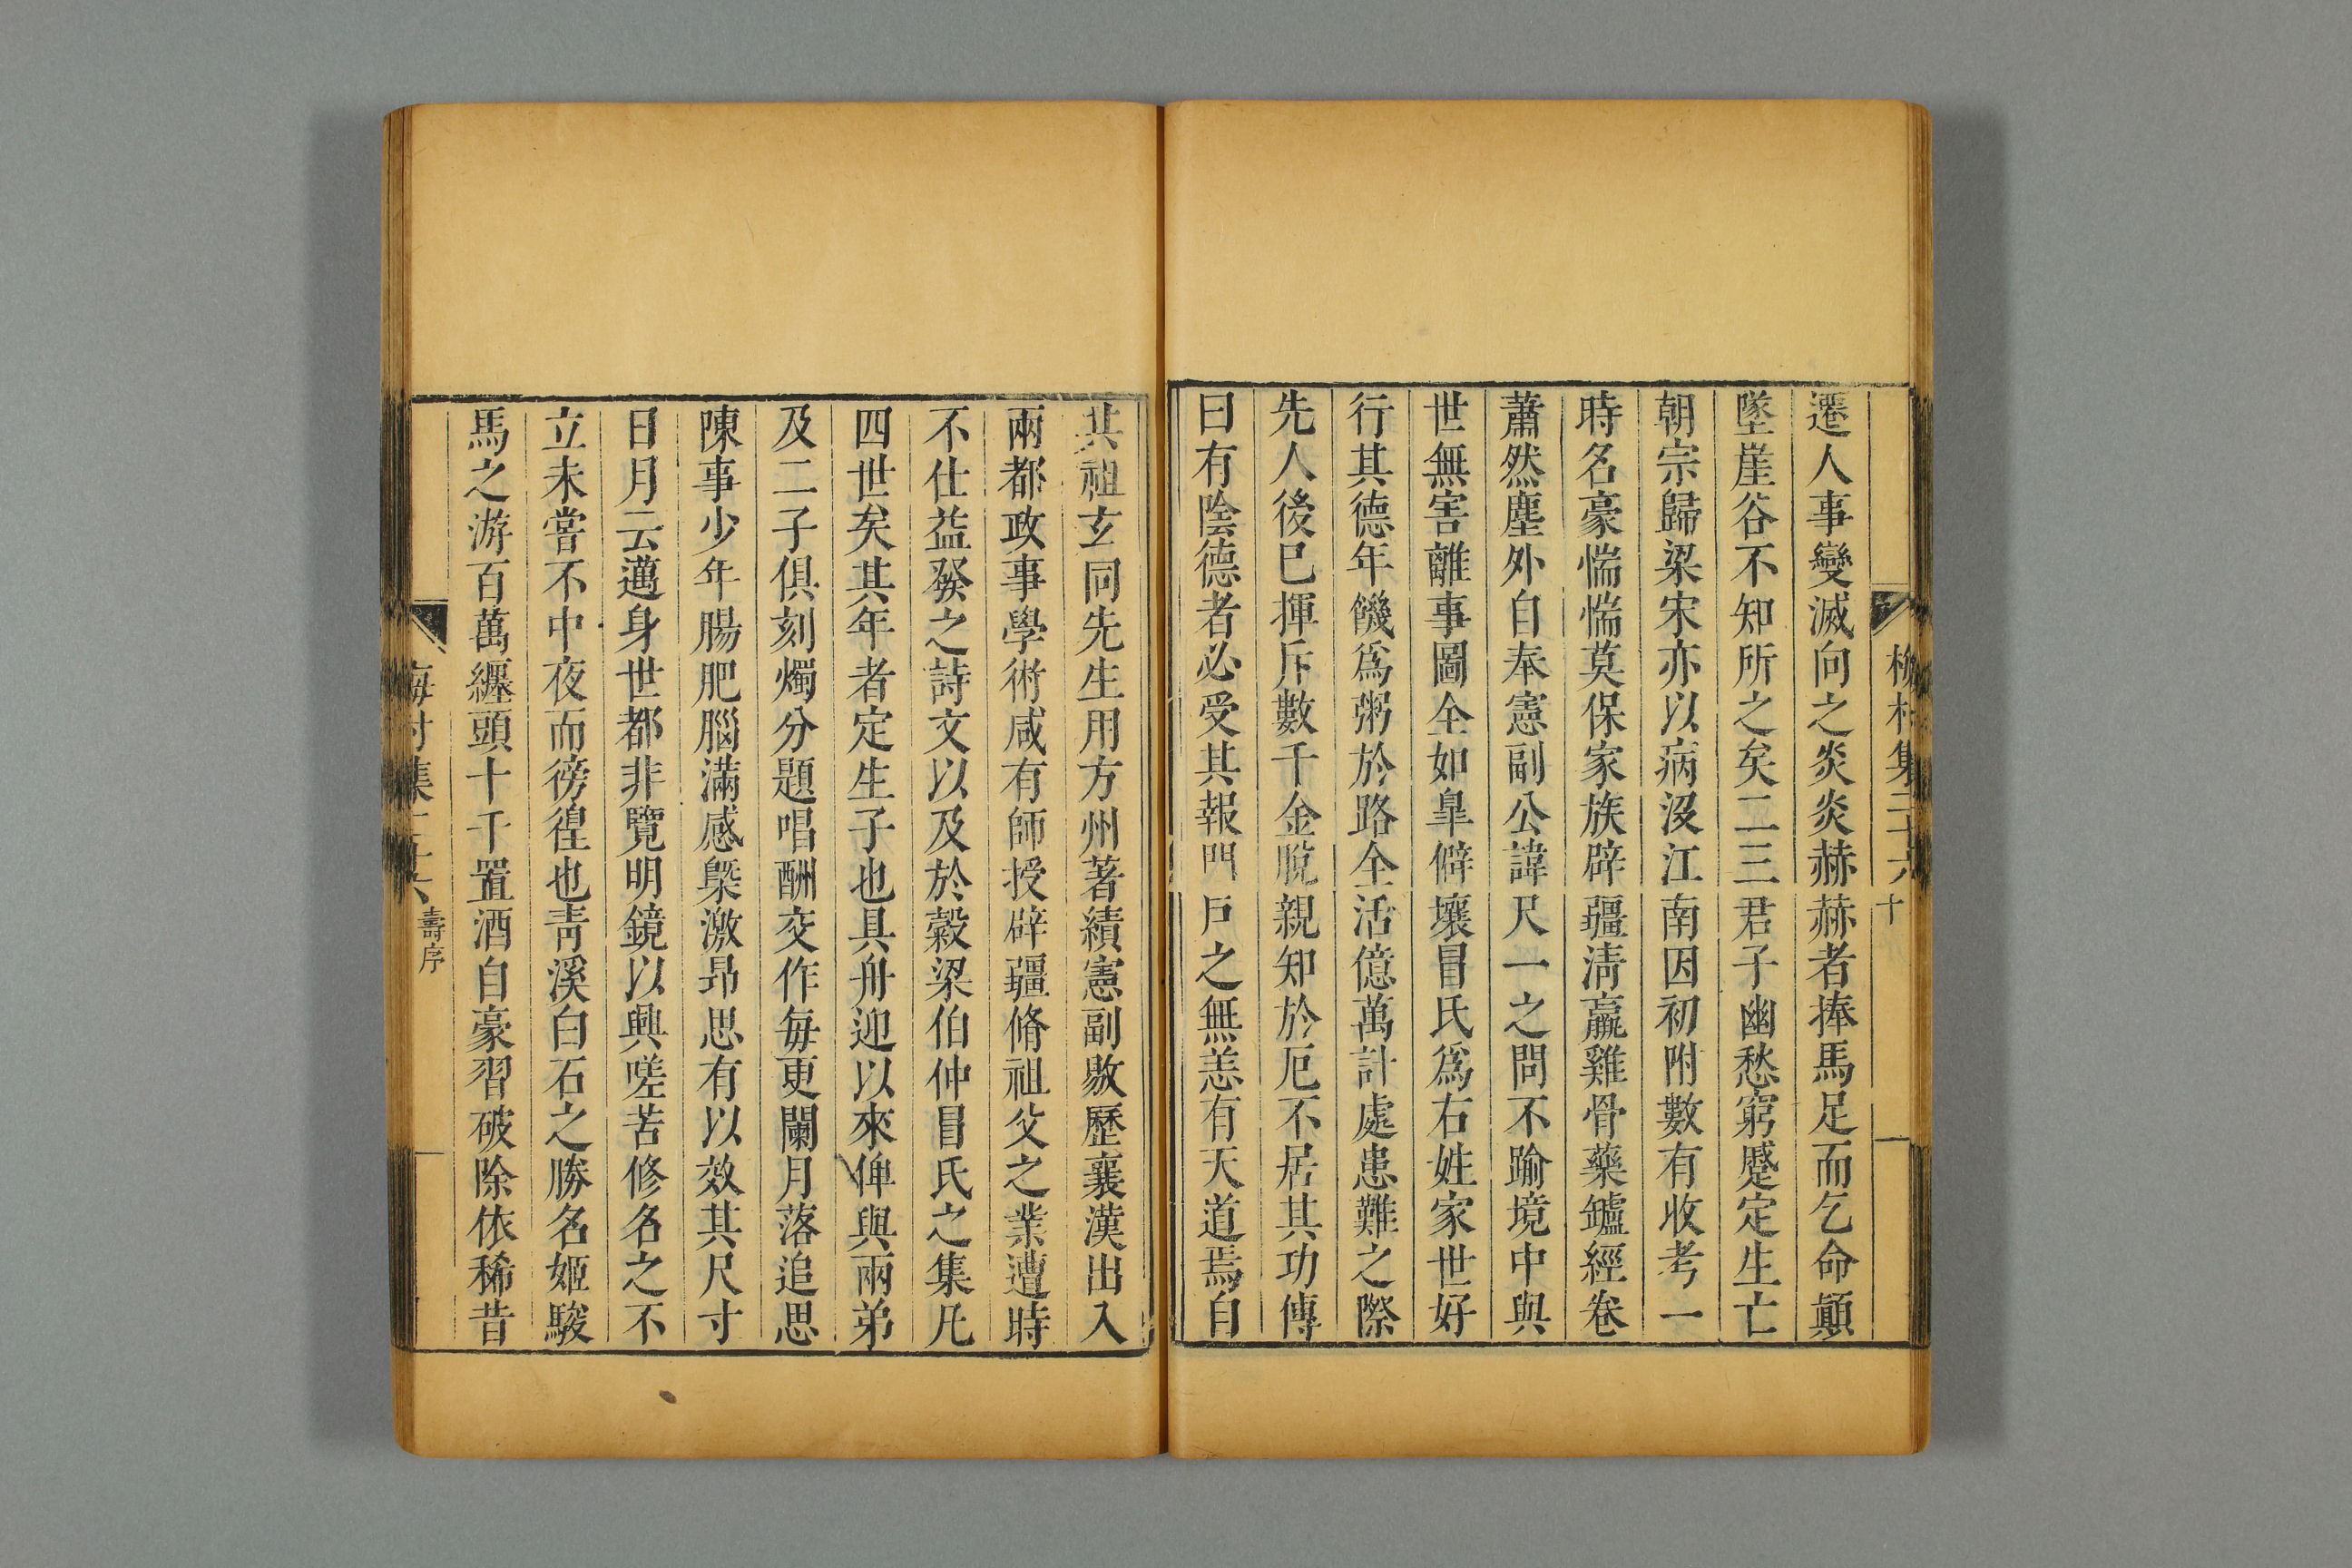 梅村集二十六 十
遷人事變滅向之炎炎赫赫者捧馬足而乞命顚
墜崖谷不知所之矣二三君子幽愁窮蹙定生亡
朝宗歸梁宋亦以病沒江南因初附數有收考一
時名豪惴惴莫保家族辟疆淸羸雞骨藥鑪經卷
蕭然塵外自奉憲副公諱尺一之問不踰境中與
世無害離事圖全如臯僻壤冒氏爲右姓家世好
行其德年饑爲粥於路全活億萬計處患難之際
先人後已揮斥數千金脫親知於厄不居其功傳
曰有陰德者必受其報門戶之無恙有天道焉自
其祖玄同先生用方州著績憲副敭歷襄漢出入
兩都政事學術咸有師授辟疆脩祖父之業遭時
不仕益發之詩文以及於穀梁伯仲冒氏之集凡
四世矣其年者定生子也具舟迎以來俾與兩弟
及二子俱刻燭分題唱酬交作每更闌月落追思
陳事少年腸肥腦滿感槩激昂思有以效其尺寸
日月云邁身世都非覽明鏡以興嗟苦修名之不
立未嘗不中夜而徬徨也靑溪白石之勝名姬駿
馬之游百萬纏頭十千置酒自豪習破除依稀昔
梅村集二十六 壽序